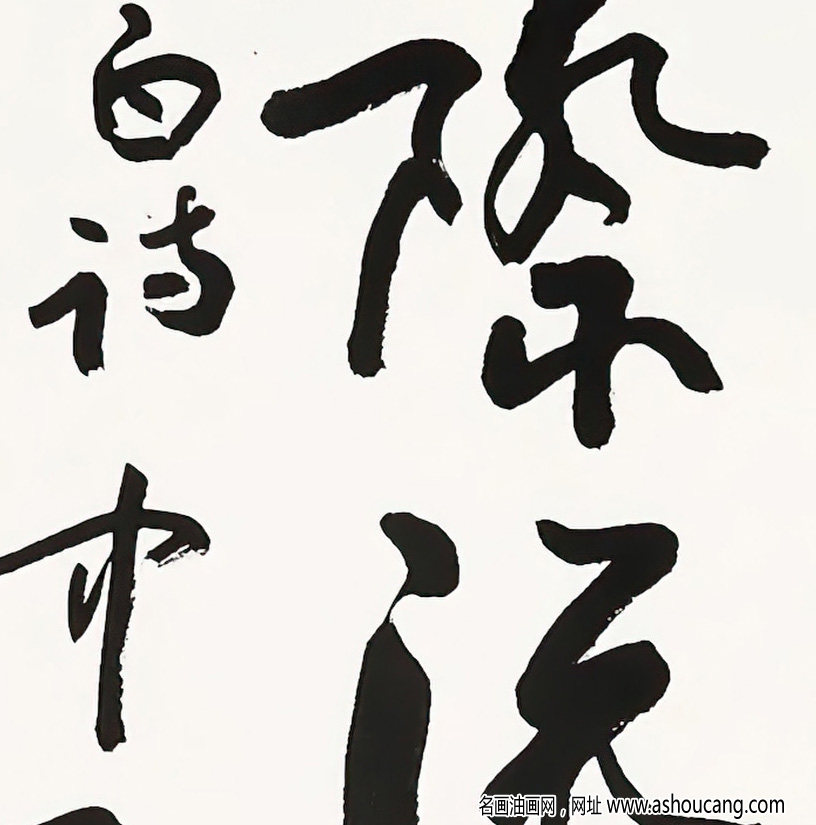 際流
白诗中
名画油画网，网址 www.ashoucang.com